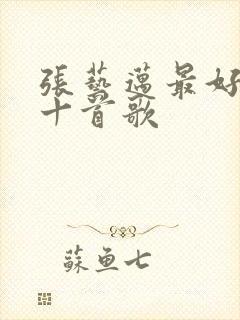 張藝邁最好
十首歌
蘇魚七